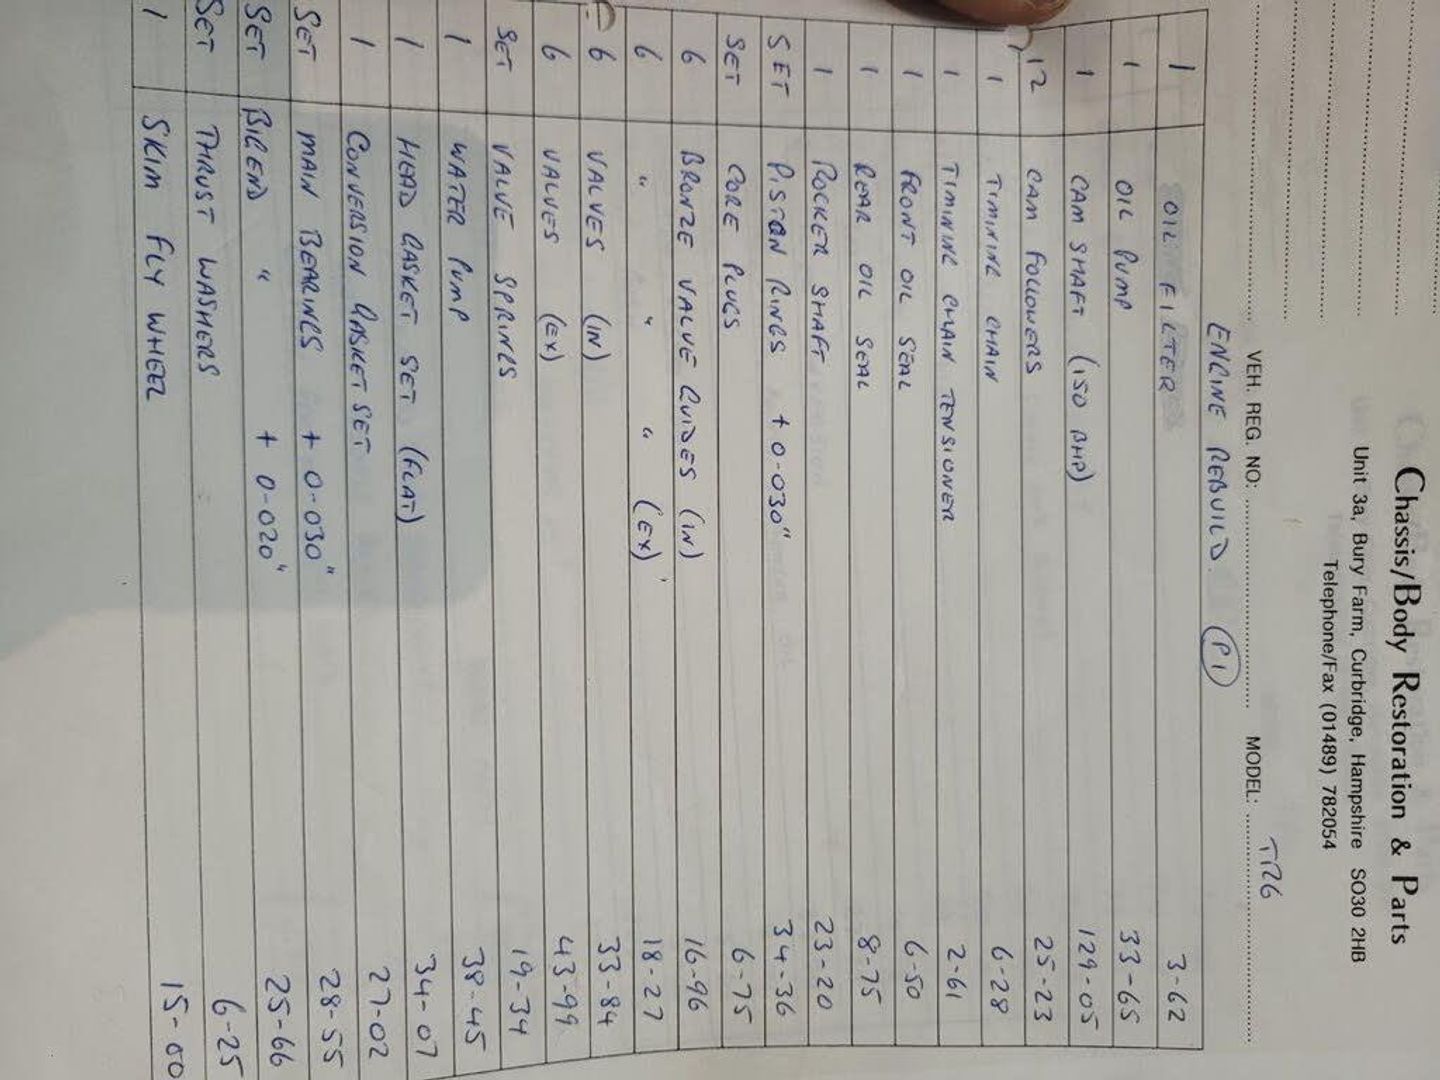 Chassis/Body Restoration & Parts
Unit 3a, Bury Farm, Curbridge, Hampshire SO30 2HB
Telephone/Fax (01489) 782054
VEH. REG. NO: MODEL: TR6
ENGINE REBUILD P1
1 OIL FILTER 3-62
1 OIL PUMP 33-65
1 CAM SHAFT (150 BHP) 129-05
12 CAM FOLLOWERS 25-23
1 TIMINING CHAIN 6-28
1 TIMINING CHAIN TENSIONER 2-61
1 FRONT OIL SEAL 6-50
1 REAR OIL SEAL 8-75
1 ROCKER SHAFT 23-20
SET PISTON RINGS + 0-030" 34-36
SET CORE PLUGS 6-75
6 BRONZE VALVE GUIDES (IN) 16-96
6 " " " (EX) 18-27
6 VALVES (IN) 33-84
6 VALVES (EX) 43-99
SET VALVE SPRINGS 19-34
1 WATER PUMP 38-45
1 HEAD GASKET SET (FLAT) 34-07
1 CONVERSION GASKET SET 27-02
SET MAIN BEARINGS + 0-030" 28-55
SET BIGEND " + 0-020" 25-66
SET THRUST WASHERS 6-25
1 SKIM FLY WHEEL 15-00